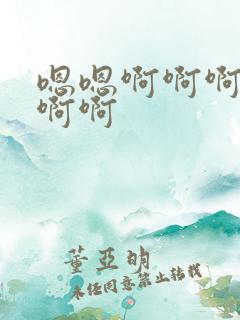 嗯嗯啊啊啊
啊啊
董亚明
未经同意禁止转载